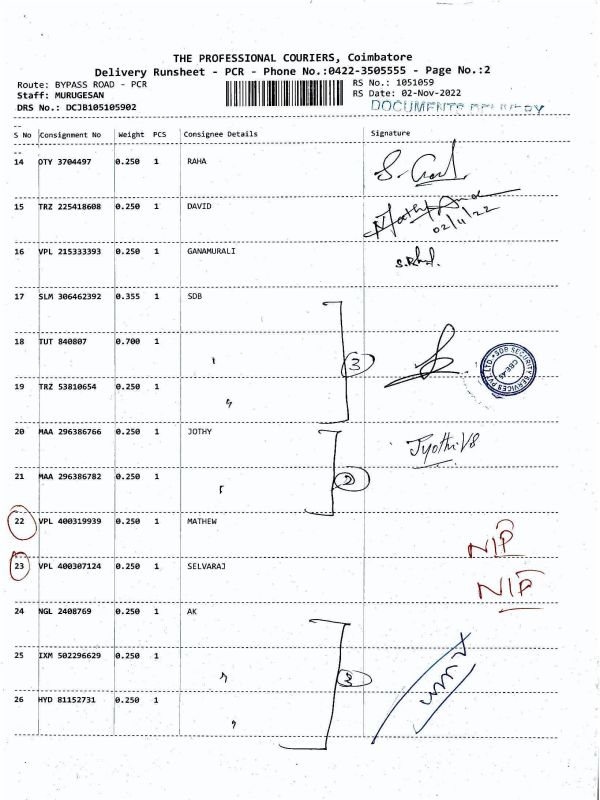 THE PROFESSIONAL COURIERS, Coimbatore
Delivery Runsheet - PCR - Phone No.:0422-3505555 - Page No.:2
Route: BYPASS ROAD - PCR
Staff: MURUGESAN
DRS No.: DCJB105105902
RS No.: 1051059
RS Date: 02-Nov-2022
DOCUMENTS
S No Consignment No Weight PCS Consignee Details Signature
14 OTY 3704497 0.250 1 RAHA
15 TRZ 225418608 0.250 1 DAVID
02/11/22
16 VPL 215333393 0.250 1 GANAMURALI
17 SLM 306462392 0.355 1 SDB
18 TUT 840807 0.700 1
3
SDB SECURITY SERVICES PVT LTD
CBE-45
19 TRZ 53810654 0.250 1 "
20 MAA 296386766 0.250 1 JOTHY Jyothi V8
21 MAA 296386782 0.250 1 2
22 VPL 400319939 0.250 1 MATHEW NIP
23 VPL 400307124 0.250 1 SELVARAJ NIP
24 NGL 2408769 0.250 1 AK
25 IXM 502296629 0.250 1 " 3
26 HYD 81152731 0.250 1 "